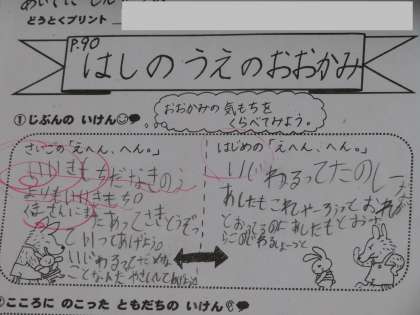 どうとくプリント
P.90
はしのうえのおおかみ
おおかみの気もちを
くらべてみよう。
①じぶんの いけん
さいごの「えへん、へん。」
いいきもちだなきのう
よりもいいきもち。
くまさんにまたあってさきどうぞっ
ていってあげよう。
いじわるってだめな
ことなんだ
はじめの「えへん、へん。」
いじわるってたのしー
あしたもこれやーろうっておれが
とおってるのに あしたもとおった
②こころに のこった ともだちの いけん